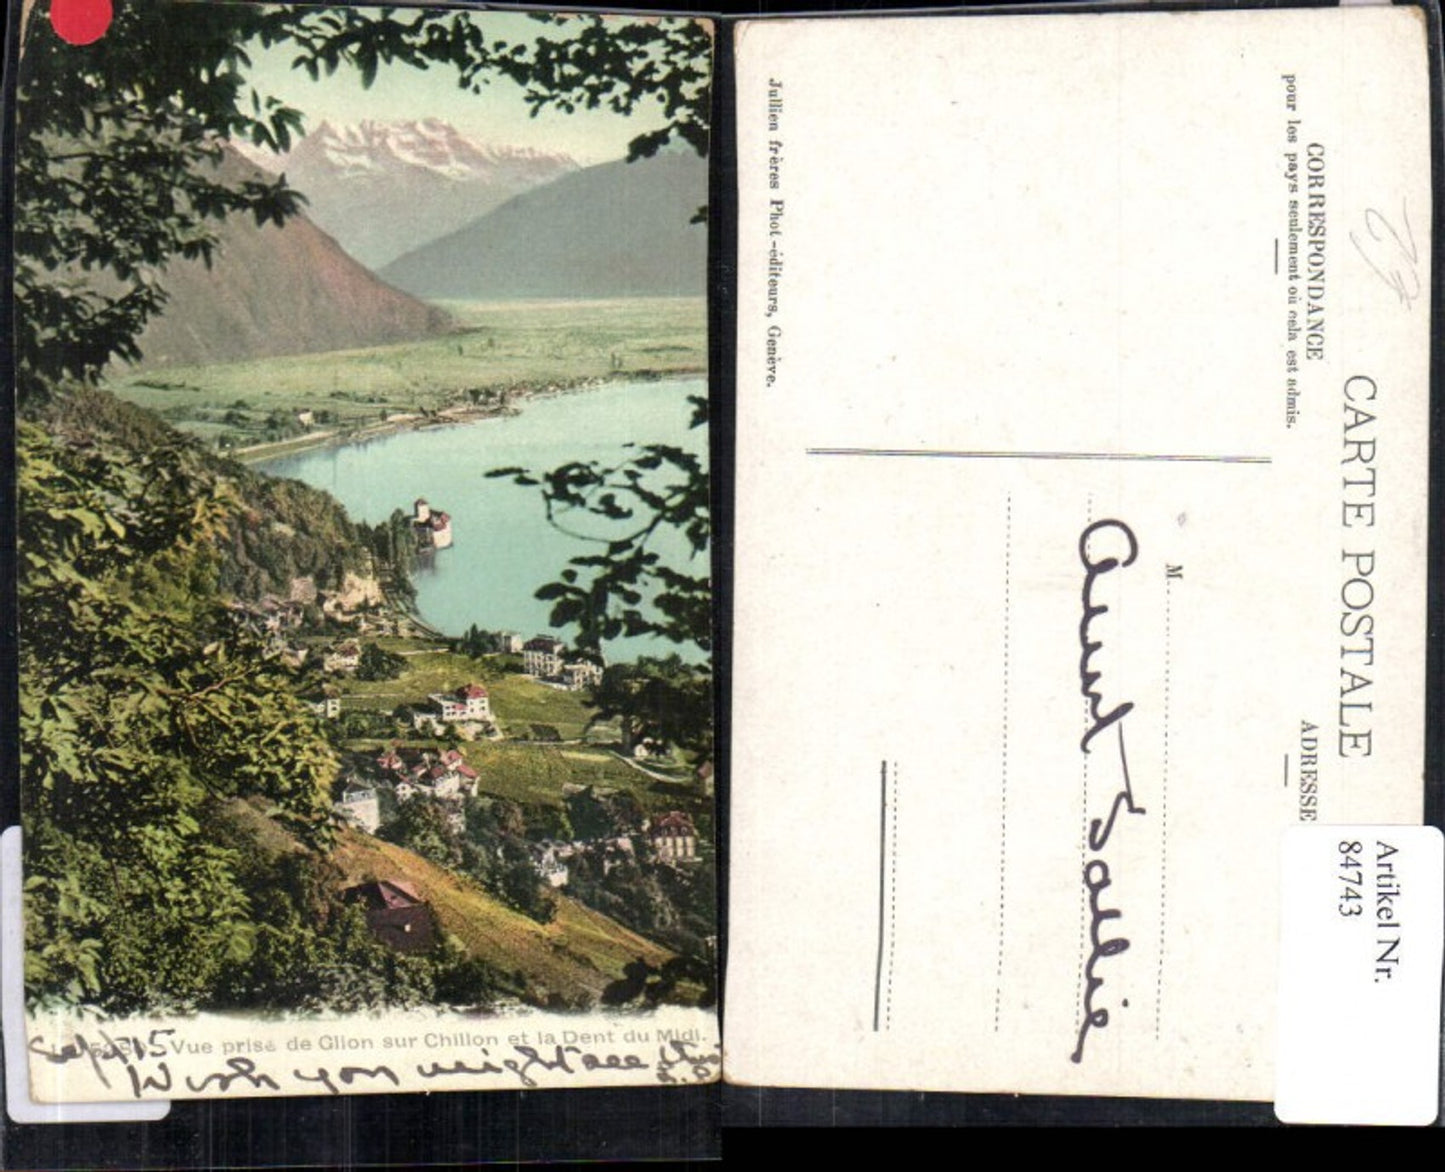 Vue prise de Glion sur Chillon et la Dent du Midi.
Sept 15
Wish you might see this
CARTE POSTALE
CORRESPONDANCE
pour les pays seulement où cela est admis.
ADRESSE
M
Aunt Sallie
Jullien frères Phot-éditeurs, Genève.
Artikel Nr.
84743